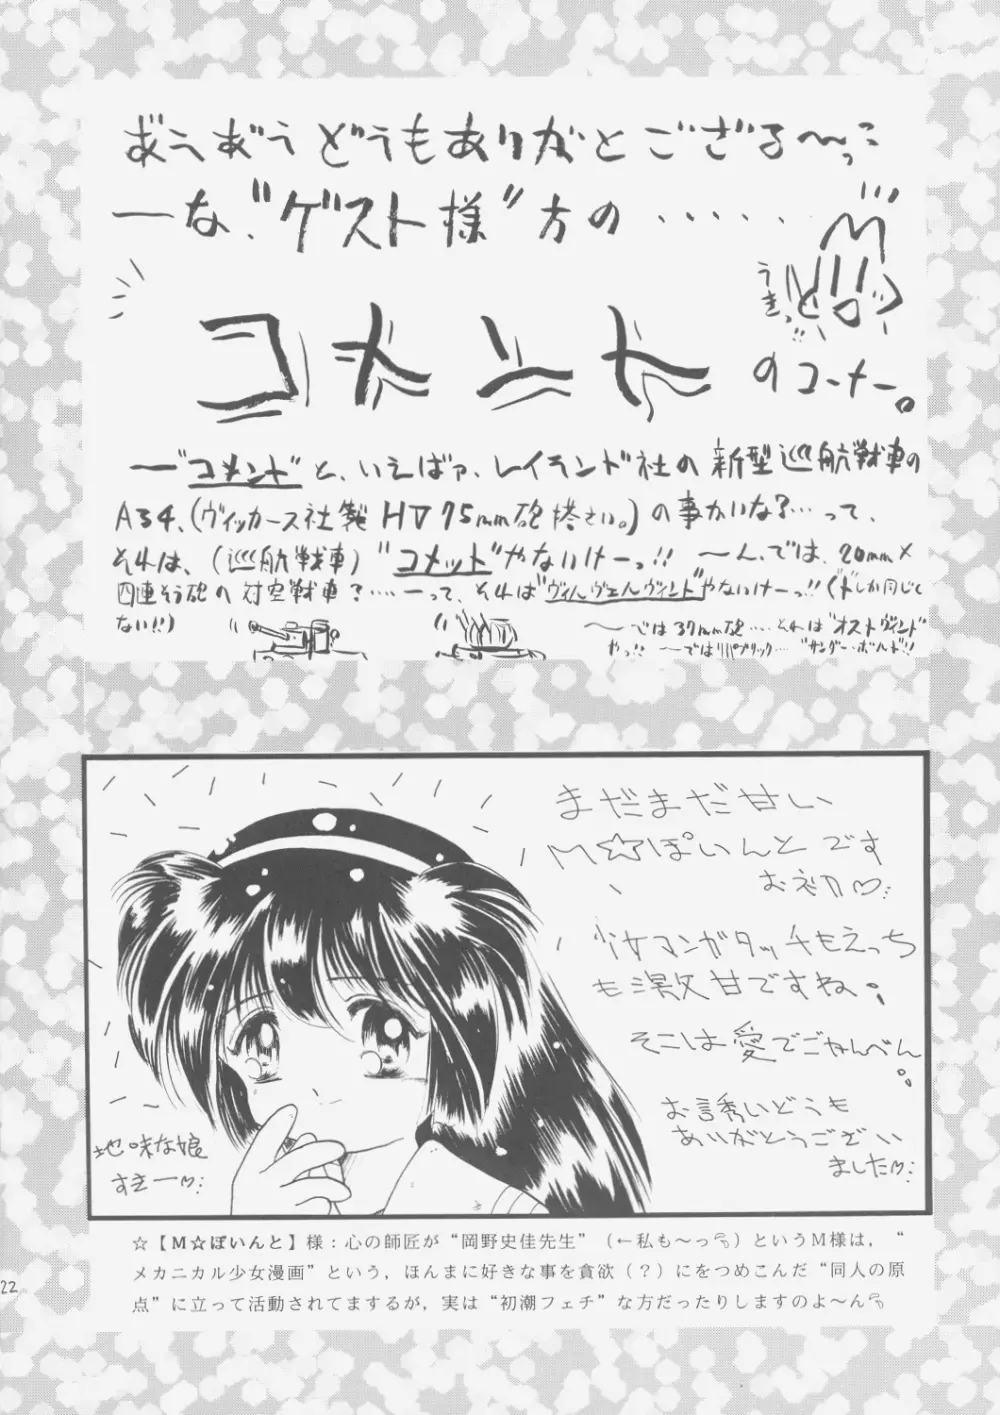 ありがとござる〜っ
ーな、“ゲスト様”方の……
うきっ
コメント
のコーナー。
ー“コメント”と、いえばァ、レイランド社の新型巡航戦車の
A34、(ヴィッカース社製HV75mm砲搭さい。)の事かいな?…って、
それは、(巡航戦車)“コメット”やないけーっ!!ーん、では、20mm×
四連そう砲の対空戦車?……ーって、それは“ヴィルヴェルヴィント”やないけーっ!!(“ド”しか同じで
ない!!)
〜では37mm砲……それは“オストヴィンド”
やっ!!ーではリパブリック…“サンダー・ボルト”!!
まだまだ甘い
M☆ぽいんとです
お初♡
少女マンガタッチもえっち
も激甘ですね。
そこは愛でごかんべん
お誘いどうも
ありがとうござい
ました♡
地味な娘
すきー♡
☆【M☆ぽいんと】様:心の師匠が“岡野史佳先生”(←私も〜っ)というM様は,“
メカニカル少女漫画”という,ほんまに好きな事を貪欲(?)にをつめこんだ“同人の原
点”に立って活動されてまするが,実は“初潮フェチ”な方だったりしますのよ〜ん
22